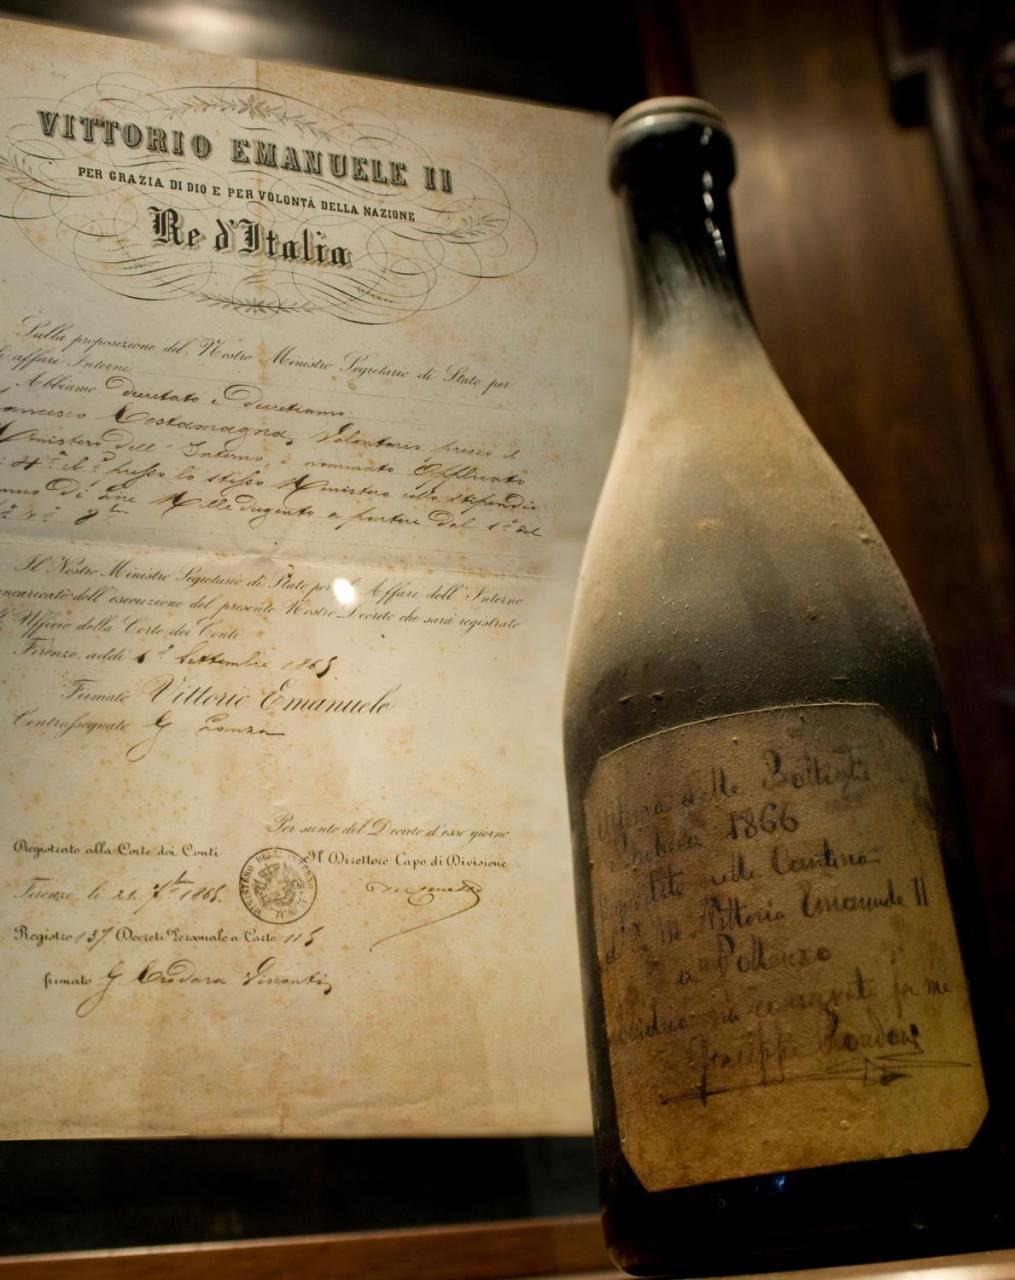 VITTORIO EMANUELE II
PER GRAZIA DI DIO E PER VOLONTÀ DELLA NAZIONE
Re d'Italia
Sulla proposizione del Nostro Ministro Segretario di Stato per
affari Interni
Abbiamo decretato e decretiamo:
Costamagna, Volontario presso il
Ministero dell'Interno, è nominato Applicato
di 4ª cl. presso lo stesso Ministero collo stipendio
annuo di Lire Mille dugento a partire dal 1º del
8bre
Il Nostro Ministro Segretario di Stato per gli Affari dell'Interno
incaricato dell'esecuzione del presente Nostro Decreto che sarà registrato
Ufficio della Corte dei Conti.
Firenze, addì 6 Settembre 1865
Firmato Vittorio Emanuele
Controssegnato G Lanza
Per sunto del Decreto d'esso giorno
Registrato alla Corte dei Conti
Il Direttore Capo di Divisione
Firenze, li 21. 7bre 1865.
Registro 137 Decreti Personale a Carte 115
firmato G Crodara Visconti
delle Bottiglie
Barbera 1866
nelle Cantine
di S. M. Vittorio Emanuele II
a Pollenzo
conservata per me
Giuseppe